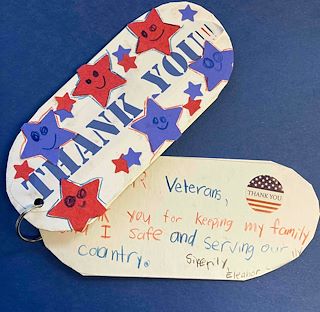 THANK YOU!!!
R Veterans,
THANK YOU
K you for keeping my family
I safe and serving our
country.
Sincerily,
Eleanor